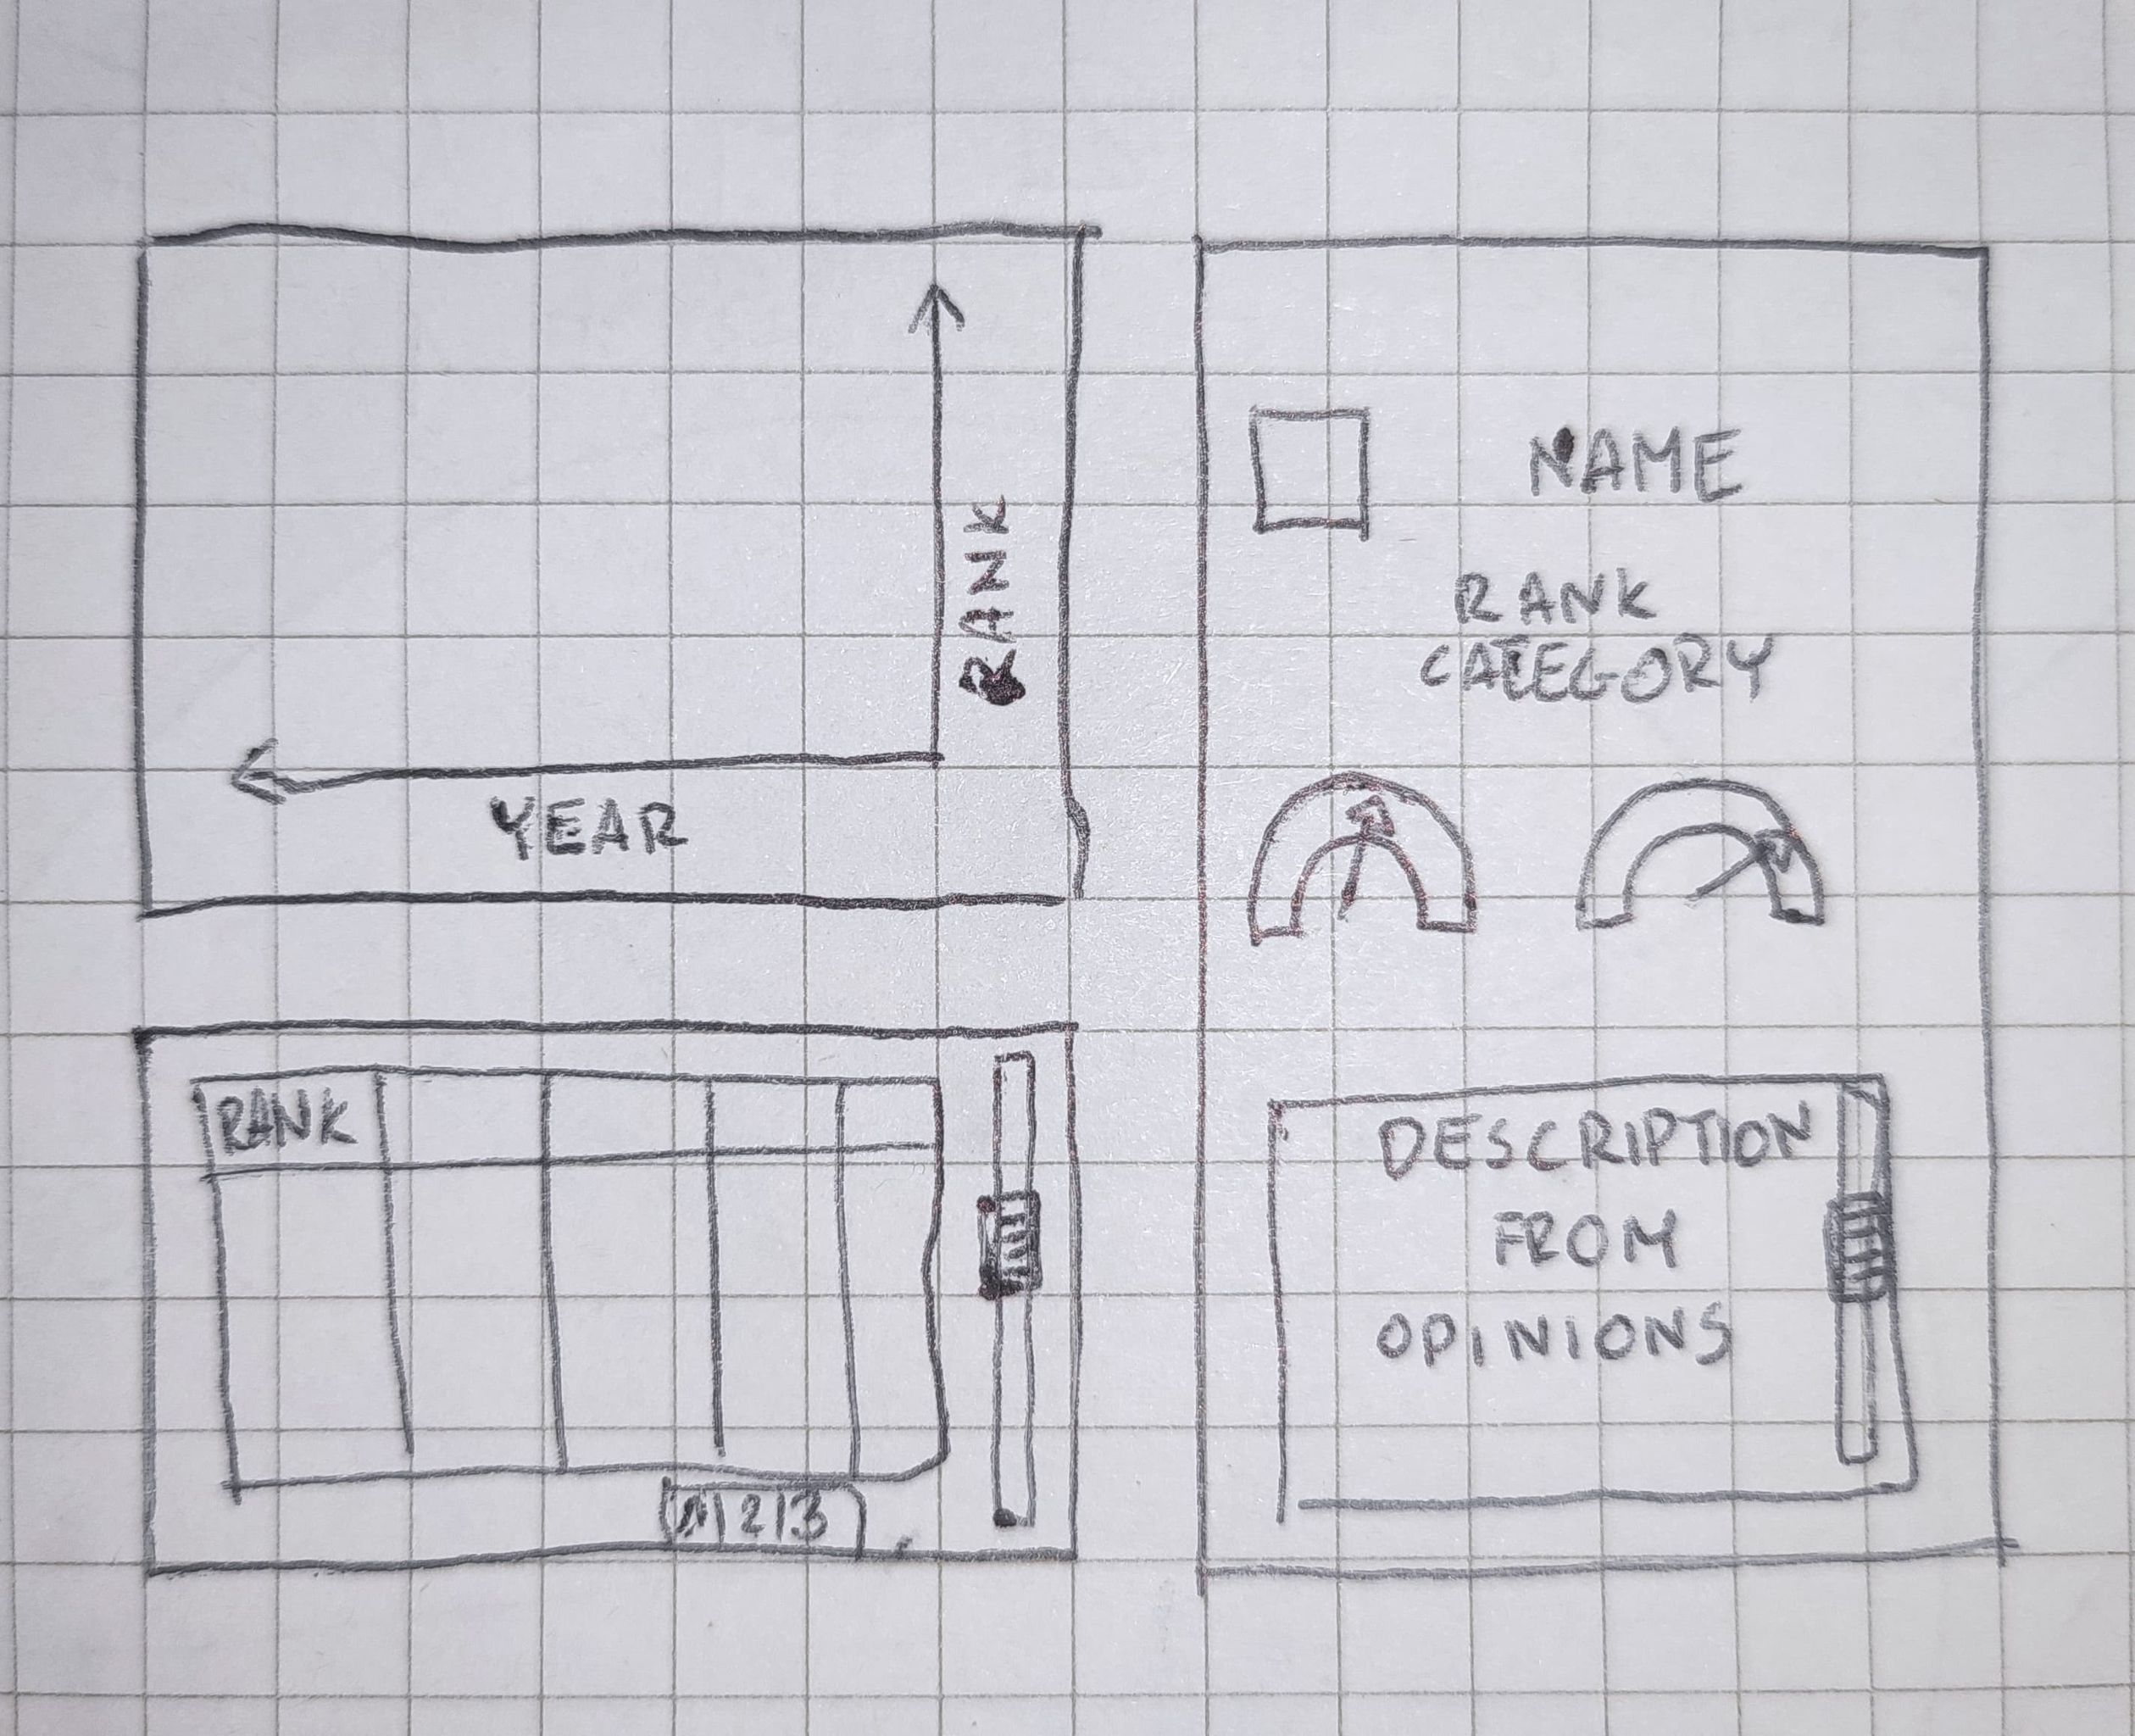 RANK
YEAR
RANK
1 2 3
NAME
RANK
CATEGORY
DESCRIPTION
FROM
OPINIONS